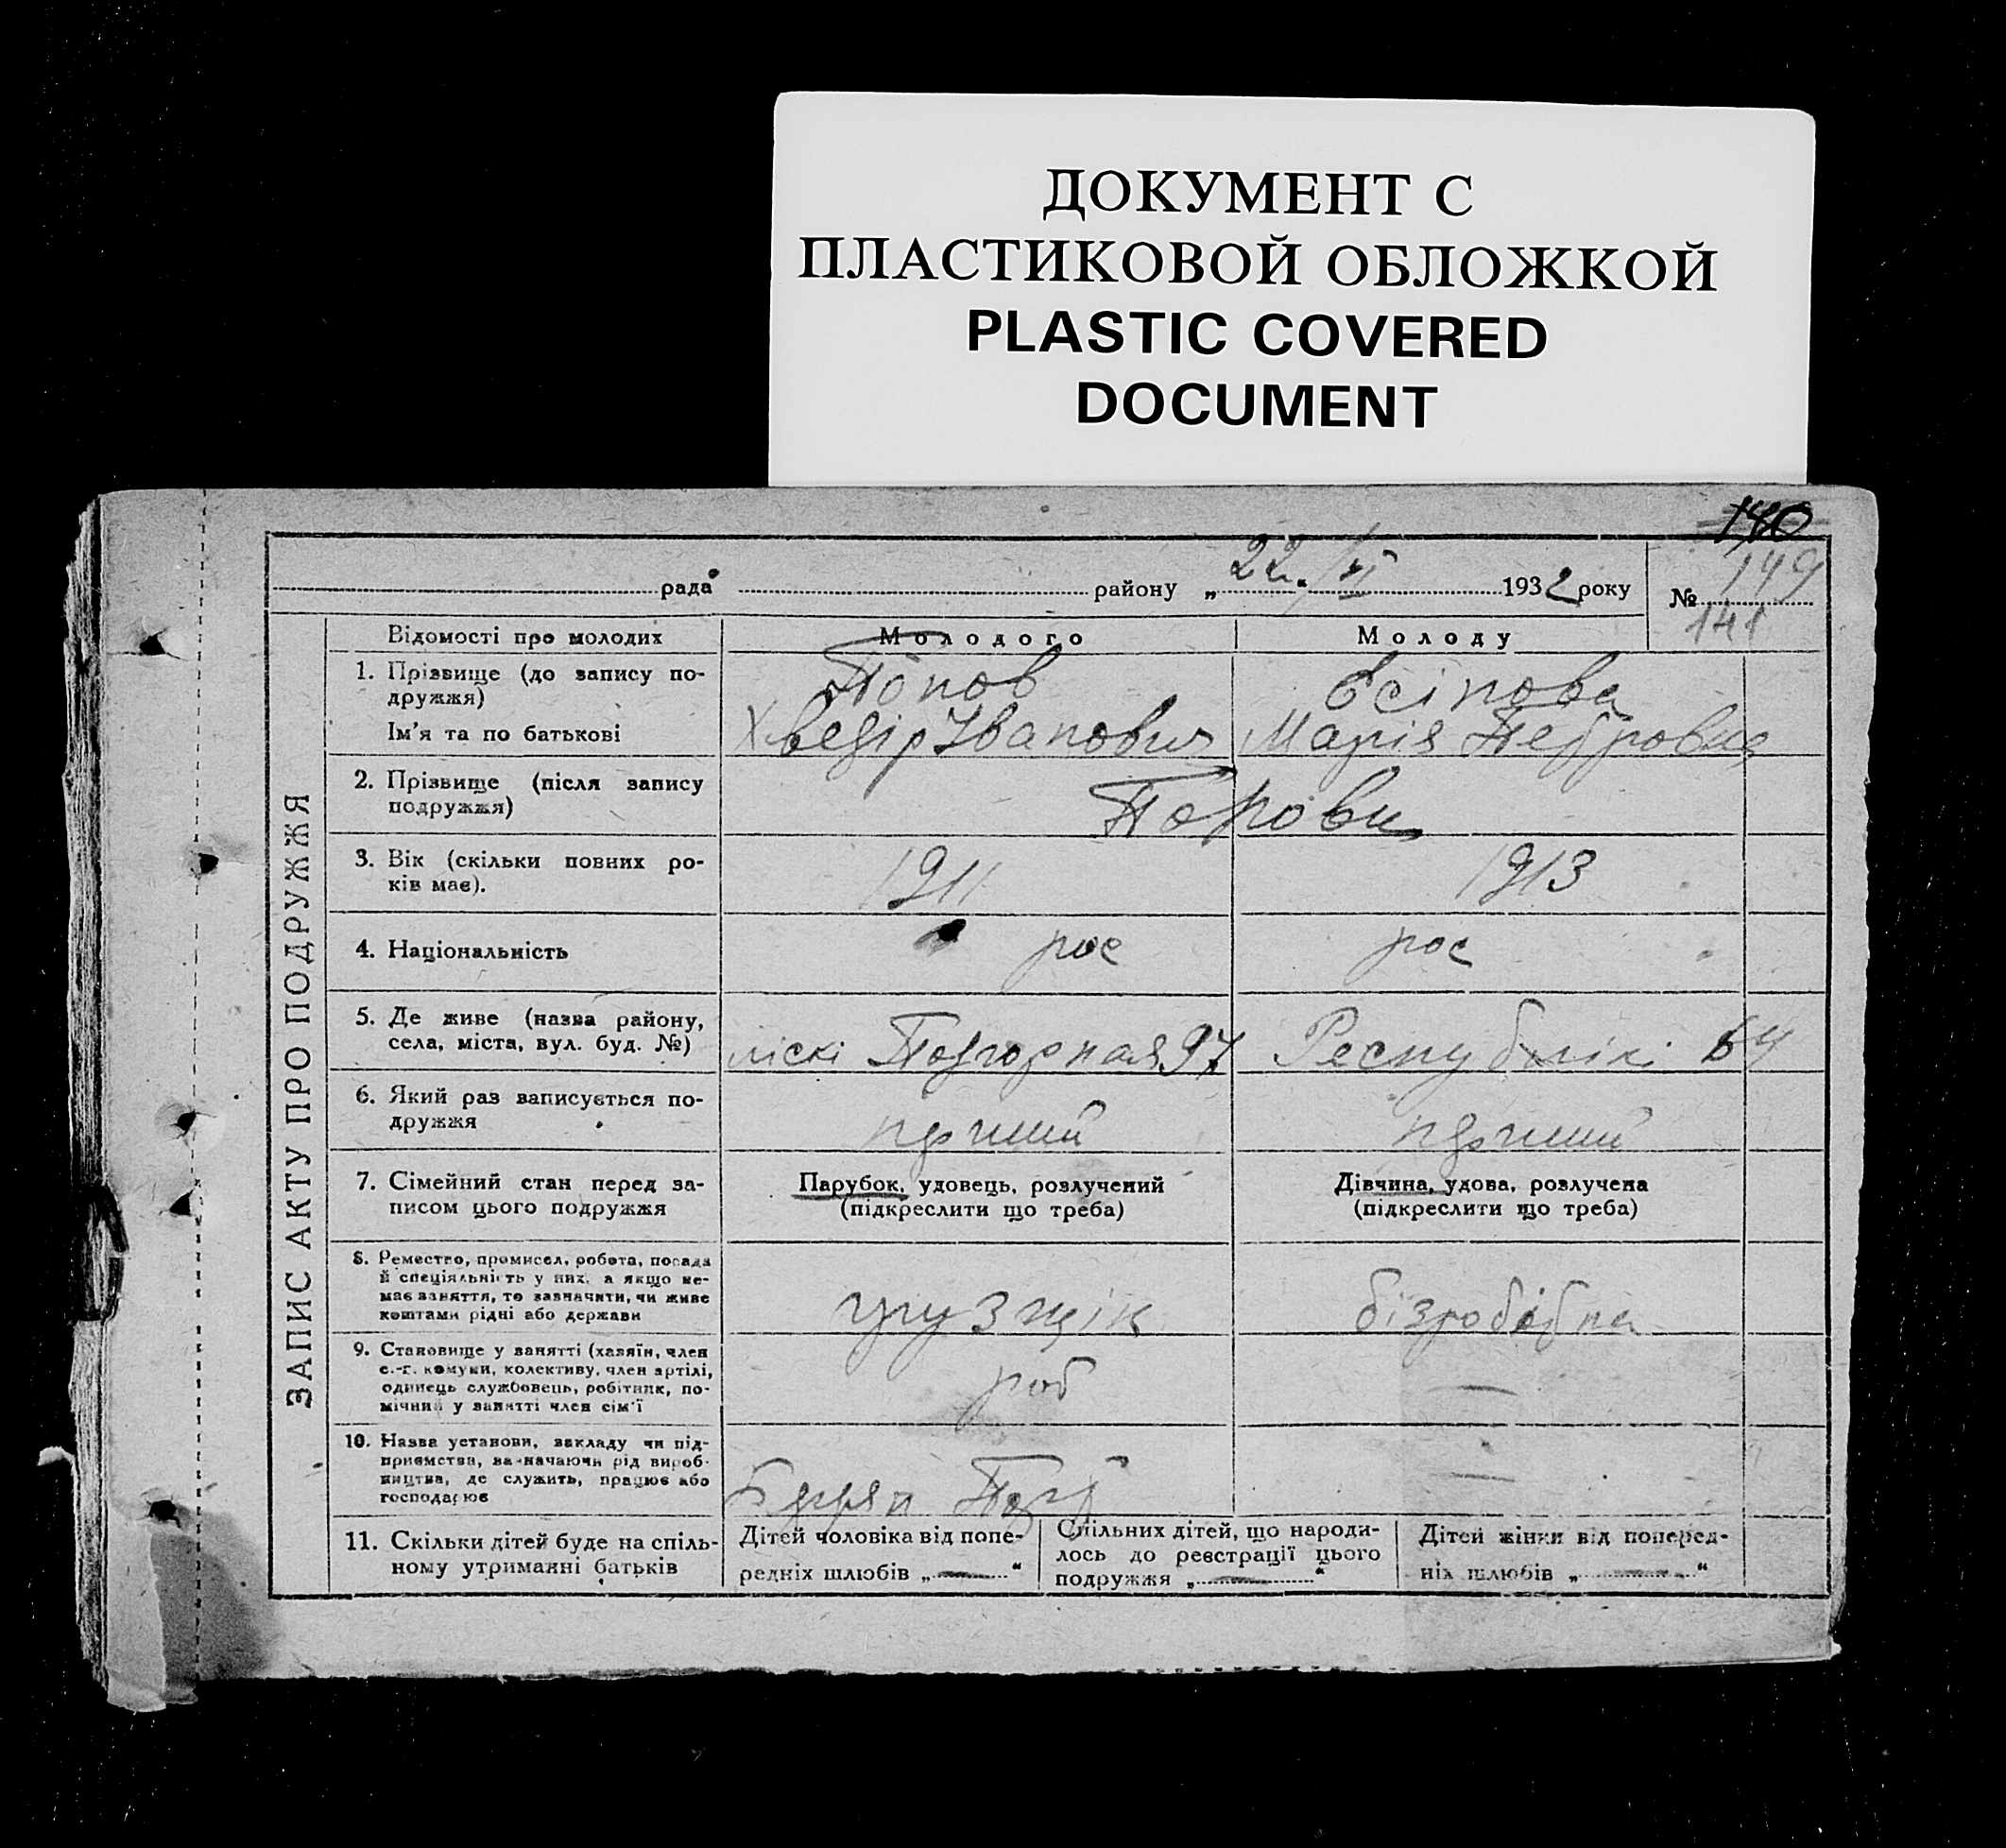 ДОКУМЕНТ С
ПЛАСТИКОВОЙ ОБЛОЖКОЙ
PLASTIC COVERED
DOCUMENT
140
рада району „ 22. VI 1932 року № 149
141
ЗАПИС АКТУ ПРО ПОДРУЖЖЯ
Відомості про молодих Молодого Молоду
1. Прізвище (до запису по-
дружжя)
Попов Єсіпова
Ім'я та по батькові Хведір Іванович Марія Петровна
2. Прізвище (після запису
подружжя)
Попови
3. Вік (скільки повних ро-
ків має).
1911 1913
4. Національність рос рос
5. Де живе (назва району,
села, міста, вул. буд. №)
ліскі Подгорная 97 Республікі 64
6. Який раз записується по-
дружжя
перший перший
7. Сімейний стан перед за-
писом цього подружжя
Парубок, удовець, розлучений
(підкреслити що треба)
Дівчина, удова, розлучена
(підкреслити що треба)
8. Ремество, промисел, робота, посада
й спеціяльність у них, а якщо не-
має заняття, то зазначити, чи живе
коштами рідні або держави
грузщік бізробітна
9. Становище у занятті (хазяїн, член
с.-г. комуни, колективу, член артілі,
одинець службовець, робітник, по-
мічний у занятті член сім'ї
роб —
10. Назва установи, закладу чи під-
приємства, зазначаючи рід вироб-
ництва, де служить, працює або
господарює
—
11. Скільки дітей буде на спіль-
ному утриманні батьків
Дітей чоловіка від попе-
редніх шлюбів „ — “
Спільних дітей, що народи-
лось до реєстрації цього
подружжя „ — “
Дітей жінки від поперед-
ніх шлюбів „ — “